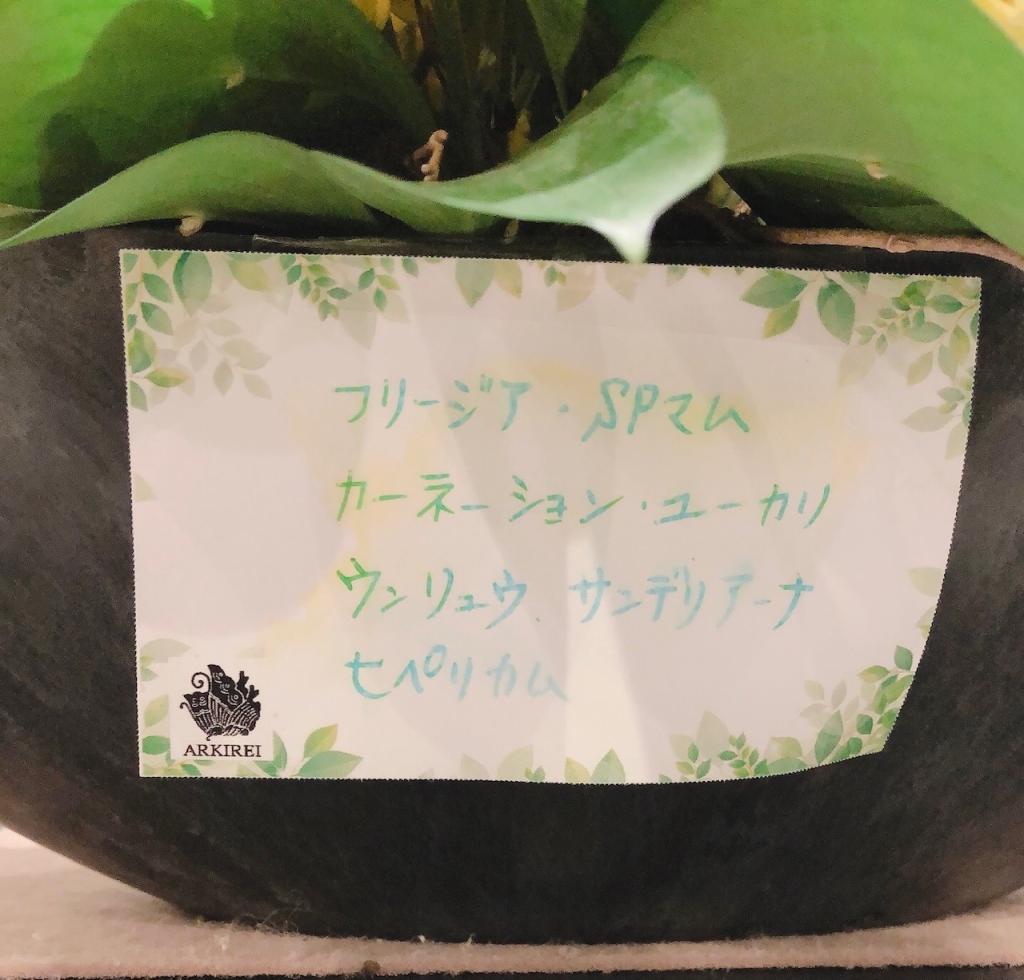 フリージア・SPマム
カーネーション・ユーカリ
ウンリュウ、サンデリアーナ
ヒペリカム
ARKIREI